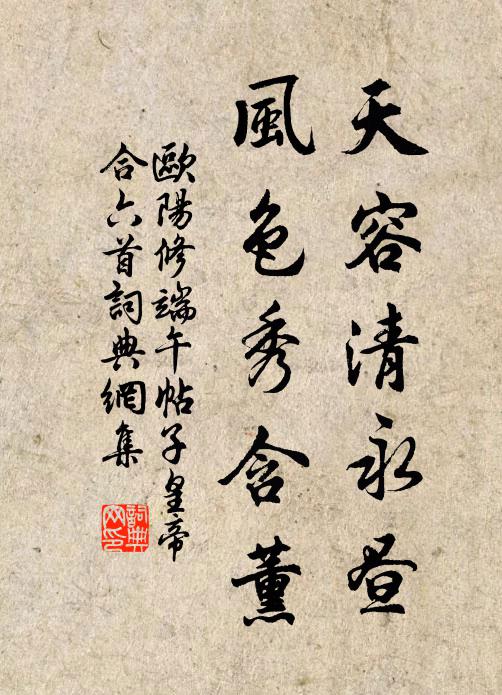 天容清永晝
風色秀含薰
歐陽修端午帖子皇帝
合六首詞典網集
詞典网印